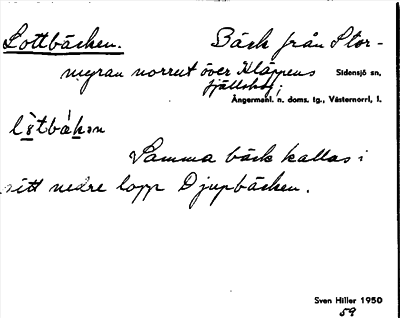 Lottbäcken. Bäck från Stor-
myran norrut över Kläppens Sidensjö sn,
fjällskog;
Ångermanl. n. doms. tg., Västernorrl. l.
Samma bäck kallas i
sitt nedre lopp Djupbäcken.
Sven Hiller 1950
59